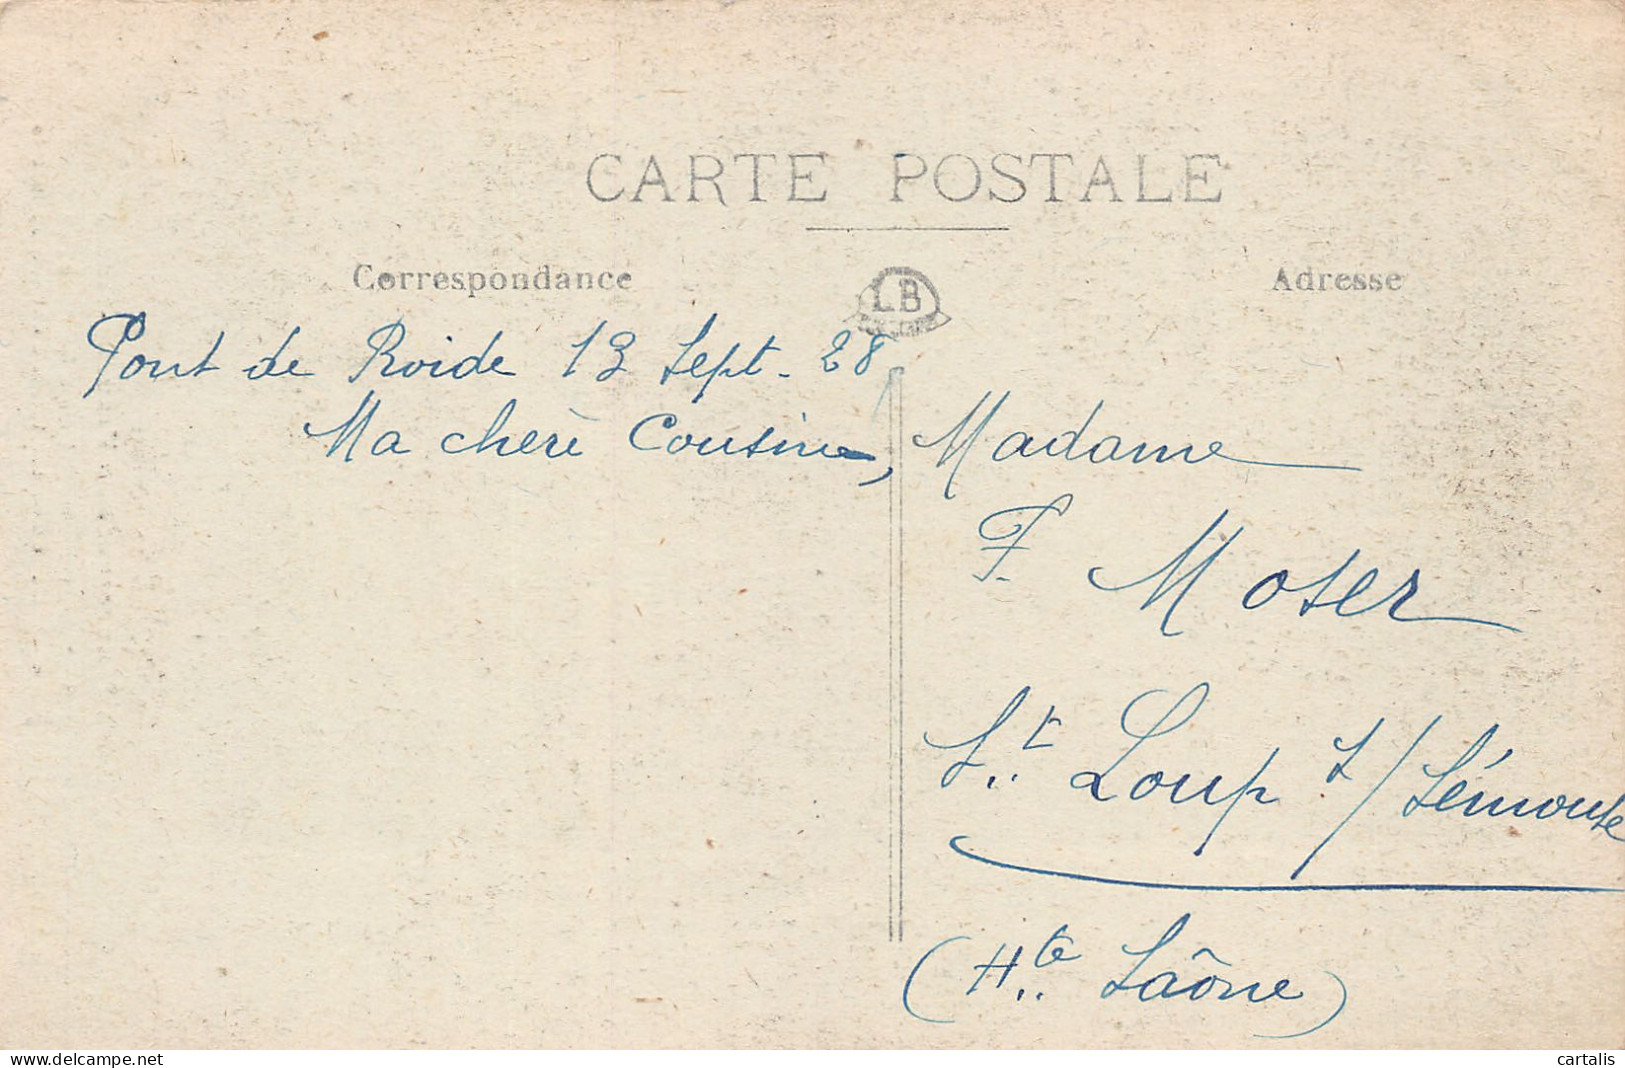 CARTE POSTALE
Correspondance
Adresse
LB
Pont de Roide 13 Sept. 28
Ma chère Cousine,
Madame
F. Moser
St. Loup s/ Sémouse
(Hte. Saône)
www.delcampe.net
cartalis